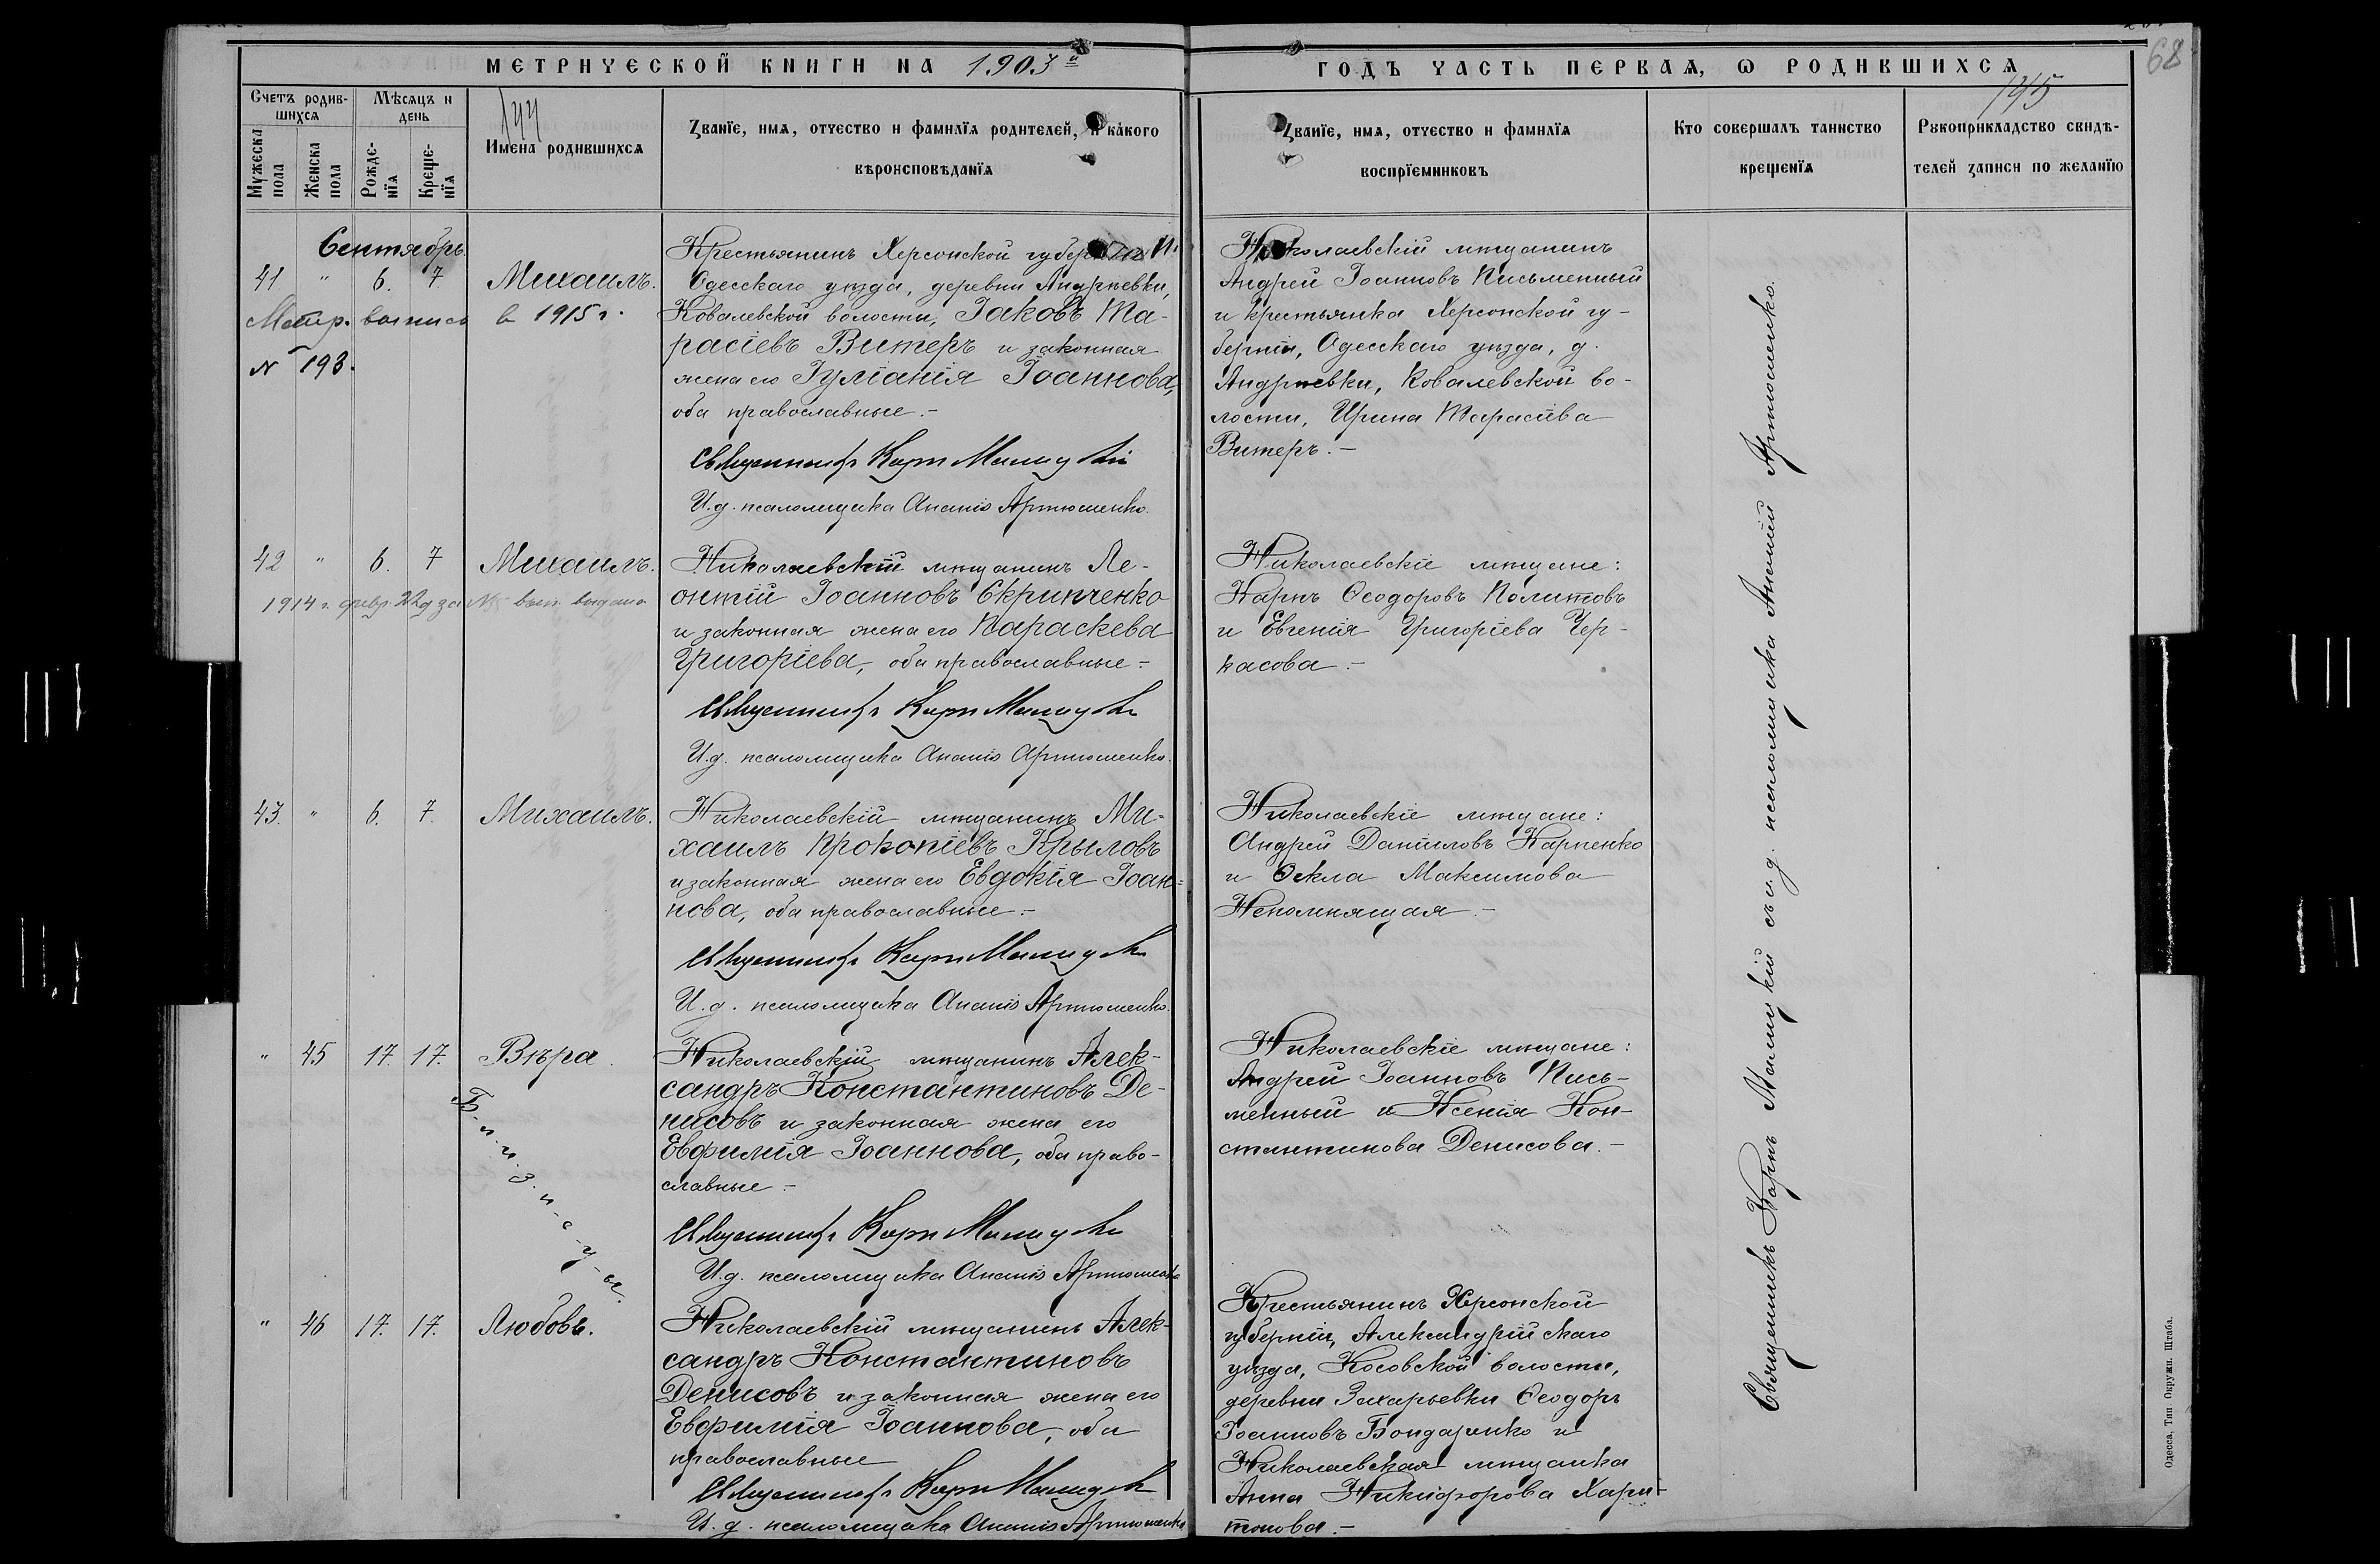 МЕТРИЧЕСКОЙ КНИГИ НА 1903й
ГОДЪ ЧАСТЬ ПЕРВАЯ, Ѡ РОДИВШИХСЯ
68
145
144
Счетъ родив-
шихся
Мужеска пола
Женска пола
Мѣсяцъ и
день
Рожде-
нія
Креще-
нія
Имена родившихся
Званіе, имя, отчество и фамилія родителей, и какого
вѣроисповѣданія
Званіе, имя, отчество и фамилія
воспріемниковъ
Кто совершалъ таинство
крещенія
Рукоприкладство свидѣ-
телей записи по желанію
Сентябрь.
41 " 6. 7. Михаилъ.
Метр. выпись в 1915 г.
№ 193.
Крестьянинъ Херсонской губерніи,
Одесскаго уѣзда, деревни Андрѣевки,
Ковалевской волости, Іаковъ Та-
расіевъ Витеръ и законная
жена его Іуліанія Іоаннова,
оба православные.-
Священникъ Карпъ Малицкій
И.д. псаломщика Ананій Артюшенко.
Николаевскій мѣщанинъ
Андрей Іоанновъ Письменный
и крестьянка Херсонской гу-
берніи, Одесскаго уѣзда, д.
Андрѣевки, Ковалевской во-
лости, Ирина Тарасіева
Витеръ.-
42 " 6. 7 Михаилъ.
1914 г. февр. за № вып. выдана
Николаевскій мѣщанинъ Ле-
онтій Іоанновъ Скрипченко
и законная жена его Параскева
Григоріева, оба православные.-
Священникъ Карпъ Малицкій
И.д. псаломщика Ананій Артюшенко.
Николаевскіе мѣщане:
Карпъ Ѳеодоровъ Политовъ
и Евгенія Григоріева Чер-
касова.-
43. " 6. 7. Михаилъ.
Николаевскій мѣщанинъ Ми-
хаилъ Прокопіевъ Крыловъ
и законная жена его Евдокія Іоан-
нова, оба православные.-
Священникъ Карпъ Малицкій
И.д. псаломщика Ананій Артюшенко.
Николаевскіе мѣщане:
Андрей Даниловъ Карпенко
и Ѳекла Максимова
Непомнящая.-
" 45 17. 17. Вѣра.
Б-л-и-з-н-е-ц-ы.
Николаевскій мѣщанинъ Алек-
сандръ Константиновъ Де-
нисовъ и законная жена его
Евфимія Іоаннова, оба право-
славные.-
Священникъ Карпъ Малицкій
И.д. псаломщика Ананій Артюшенко
Николаевскіе мѣщане:
Андрей Іоанновъ Пись-
менный и Ксенія Кон-
стантинова Денисова.-
" 46 17. 17. Любовь.
Николаевскій мѣщанинъ Алек-
сандръ Константиновъ
Денисовъ и законная жена его
Евфимія Іоаннова, оба
православные
Священникъ Карпъ Малицкій
И.д. псаломщика Ананій Артюшенко
Крестьянинъ Херсонской
губерніи, Александрійскаго
уѣзда, Косовской волости,
деревни Захарьевки Ѳеодоръ
Іоанновъ Бондаренко и
Николаевская мѣщанка
Анна Никифорова Хари-
тонова.-
Священникъ Карпъ Малицкій съ и.д. псаломщика Ананій Артюшенко.
Одесса, Тип. Окружн. Штаба.